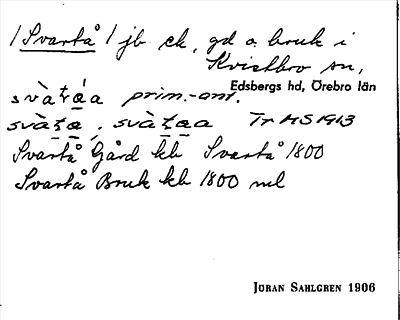 /Svartå/ jb ek, gd o. bruk i
Kvistbro sn,
Edsbergs hd, Örebro län
svàt̠a̠a prim.-ant.
svàt̠a̠, svàt̠a̠a Tr HS 1913
Svartå Gård kb Svartå 1800
Svartå Bruk kb 1800 ml
JÖRAN SAHLGREN 1906